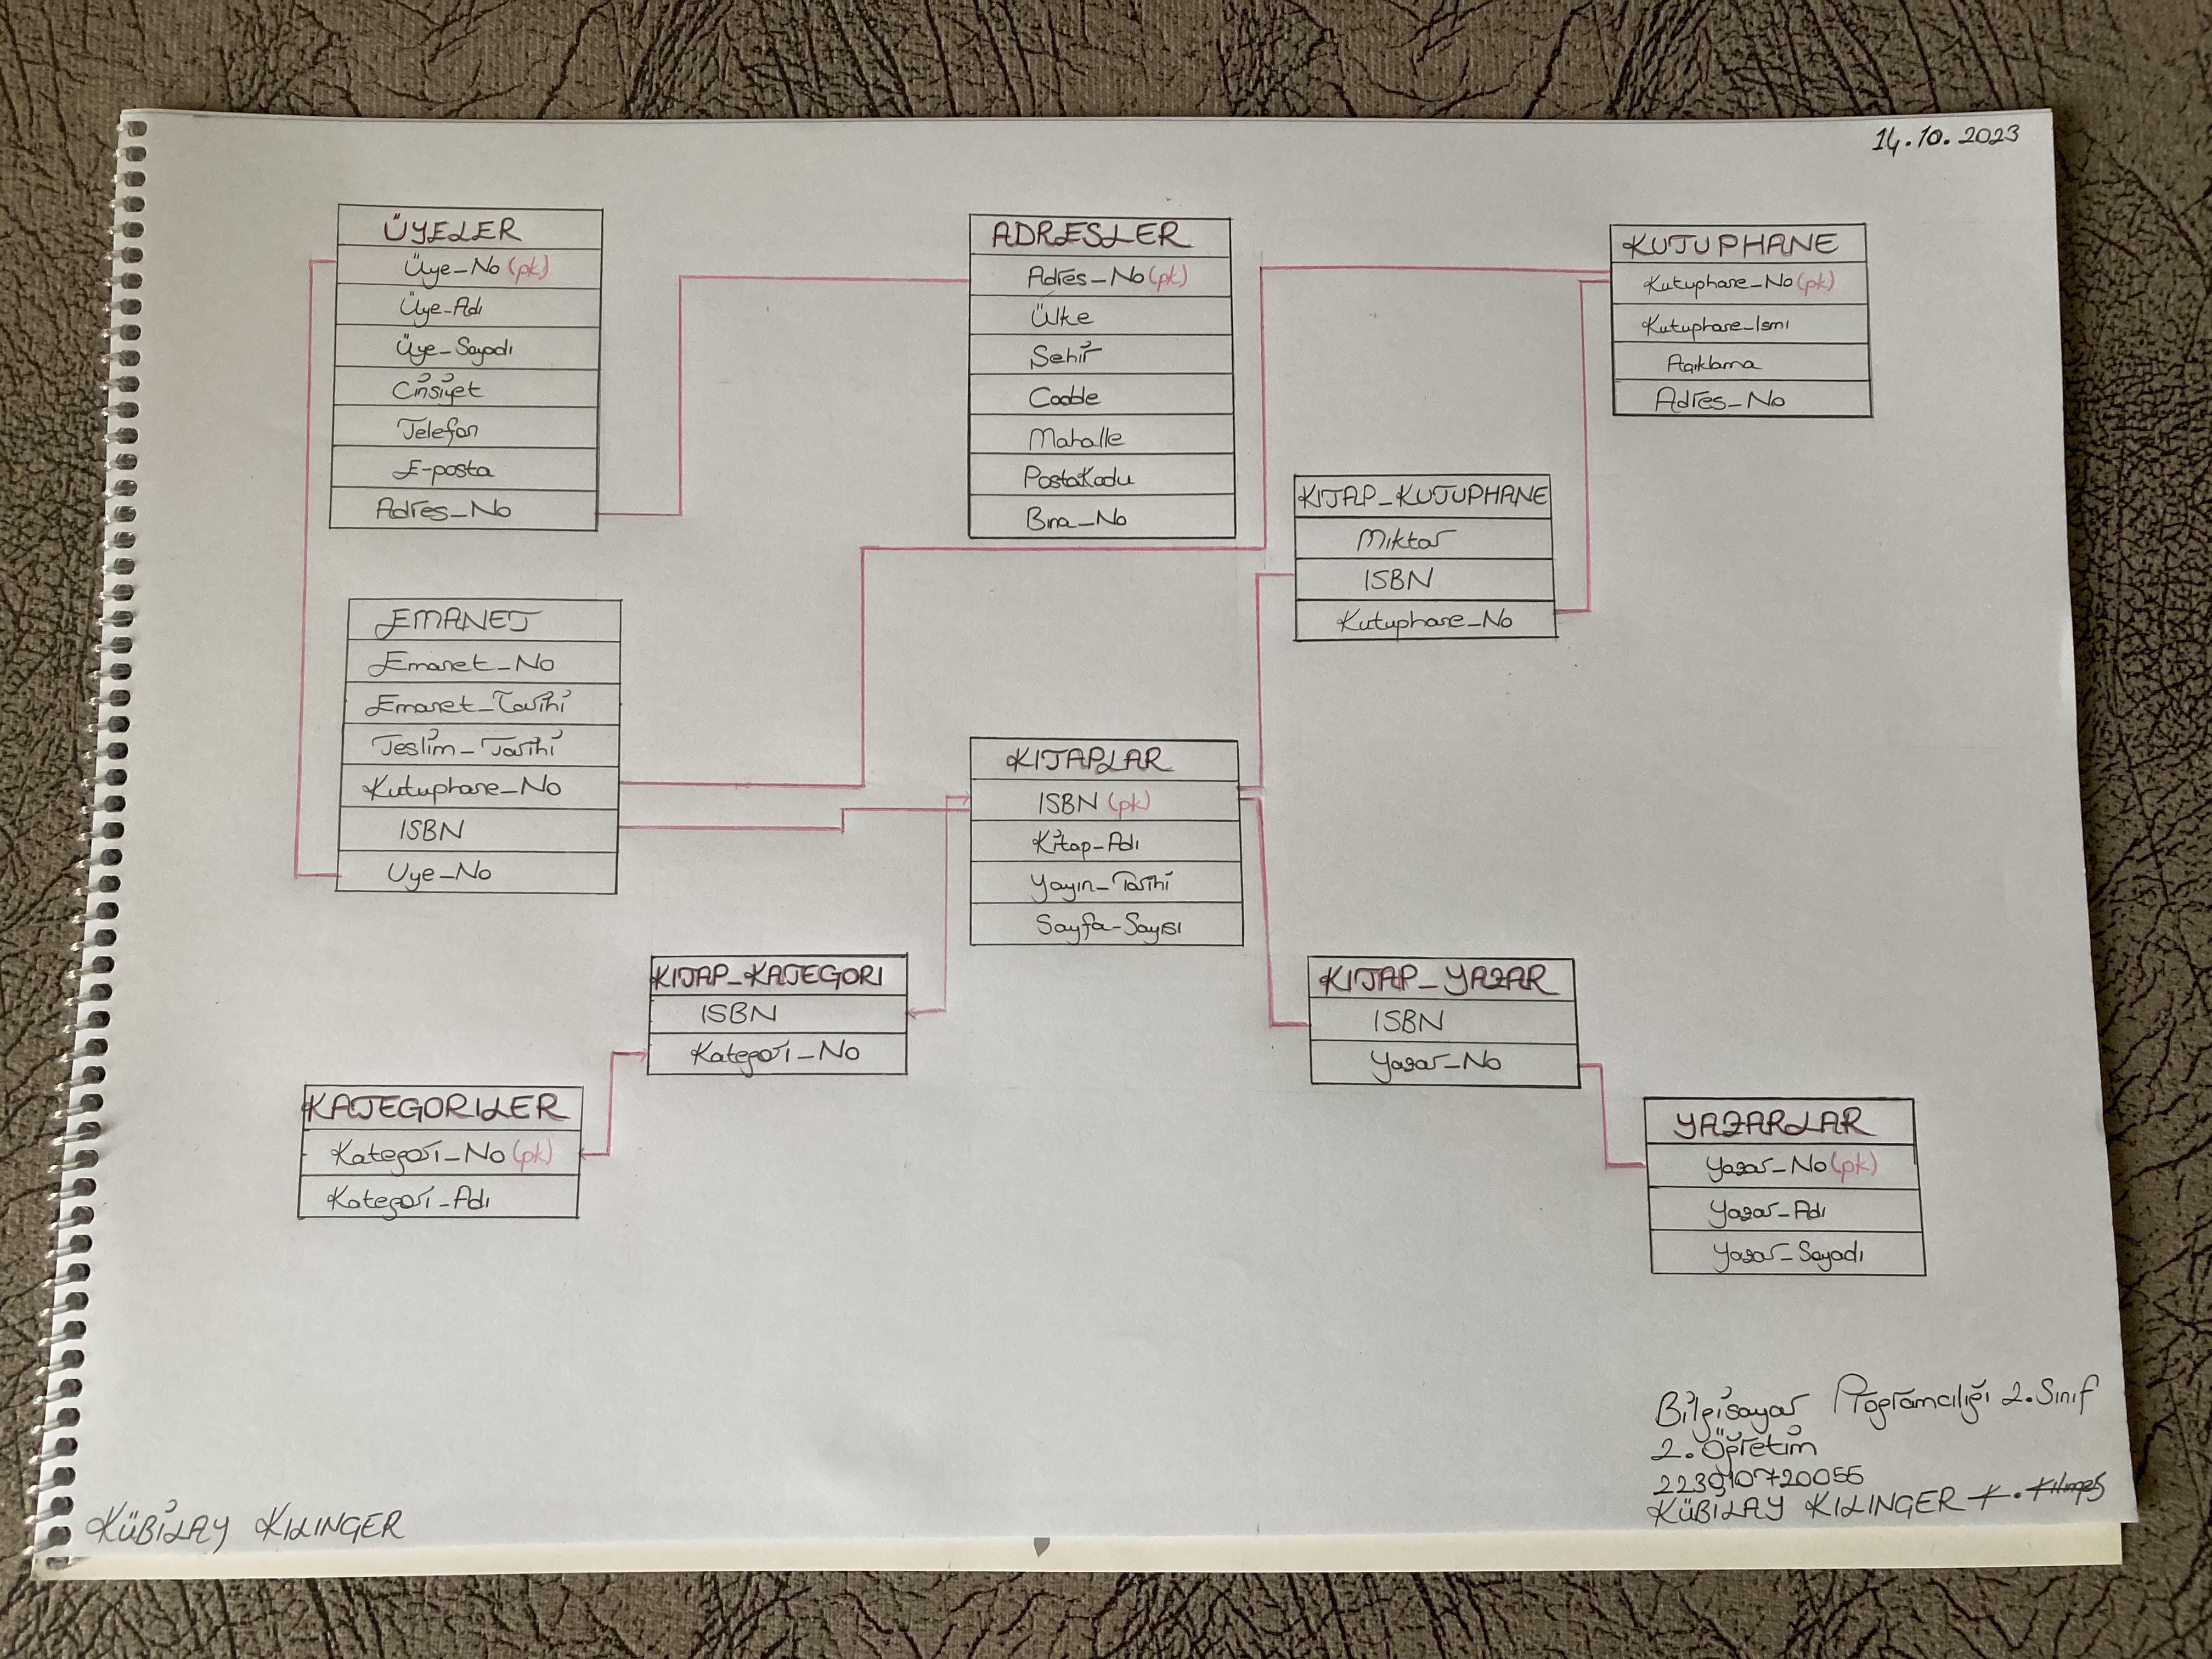 14.10.2023
ÜYELER
Üye_No (pk)
Üye_Adı
Üye_Soyadı
Cinsiyet
Telefon
E-posta
Adres_No
ADRESLER
Adres_No (pk)
Ülke
Sehir
Cadde
Mahalle
PostaKodu
Bina_No
KUTUPHANE
Kutuphane_No (pk)
Kutuphane_Ismi
Açıklama
Adres_No
KITAP_KUTUPHANE
Miktar
ISBN
Kutuphane_No
EMANET
Emanet_No
Emanet_Tarihi
Teslim_Tarihi
Kutuphane_No
ISBN
Uye_No
KITAPLAR
ISBN (pk)
Kitap_Adı
Yayın_Tarihi
Sayfa_Sayısı
KITAP_KATEGORI
ISBN
Kategori_No
KITAP_YAZAR
ISBN
Yazar_No
KATEGORILER
Kategori_No (pk)
Kategori_Adı
YAZARLAR
Yazar_No (pk)
Yazar_Adı
Yazar_Soyadı
Bilgisayar Programcılığı 2. Sınıf
2. Öğretim
223910720055
KÜBİLAY KILINGER
KÜBİLAY KILINGER